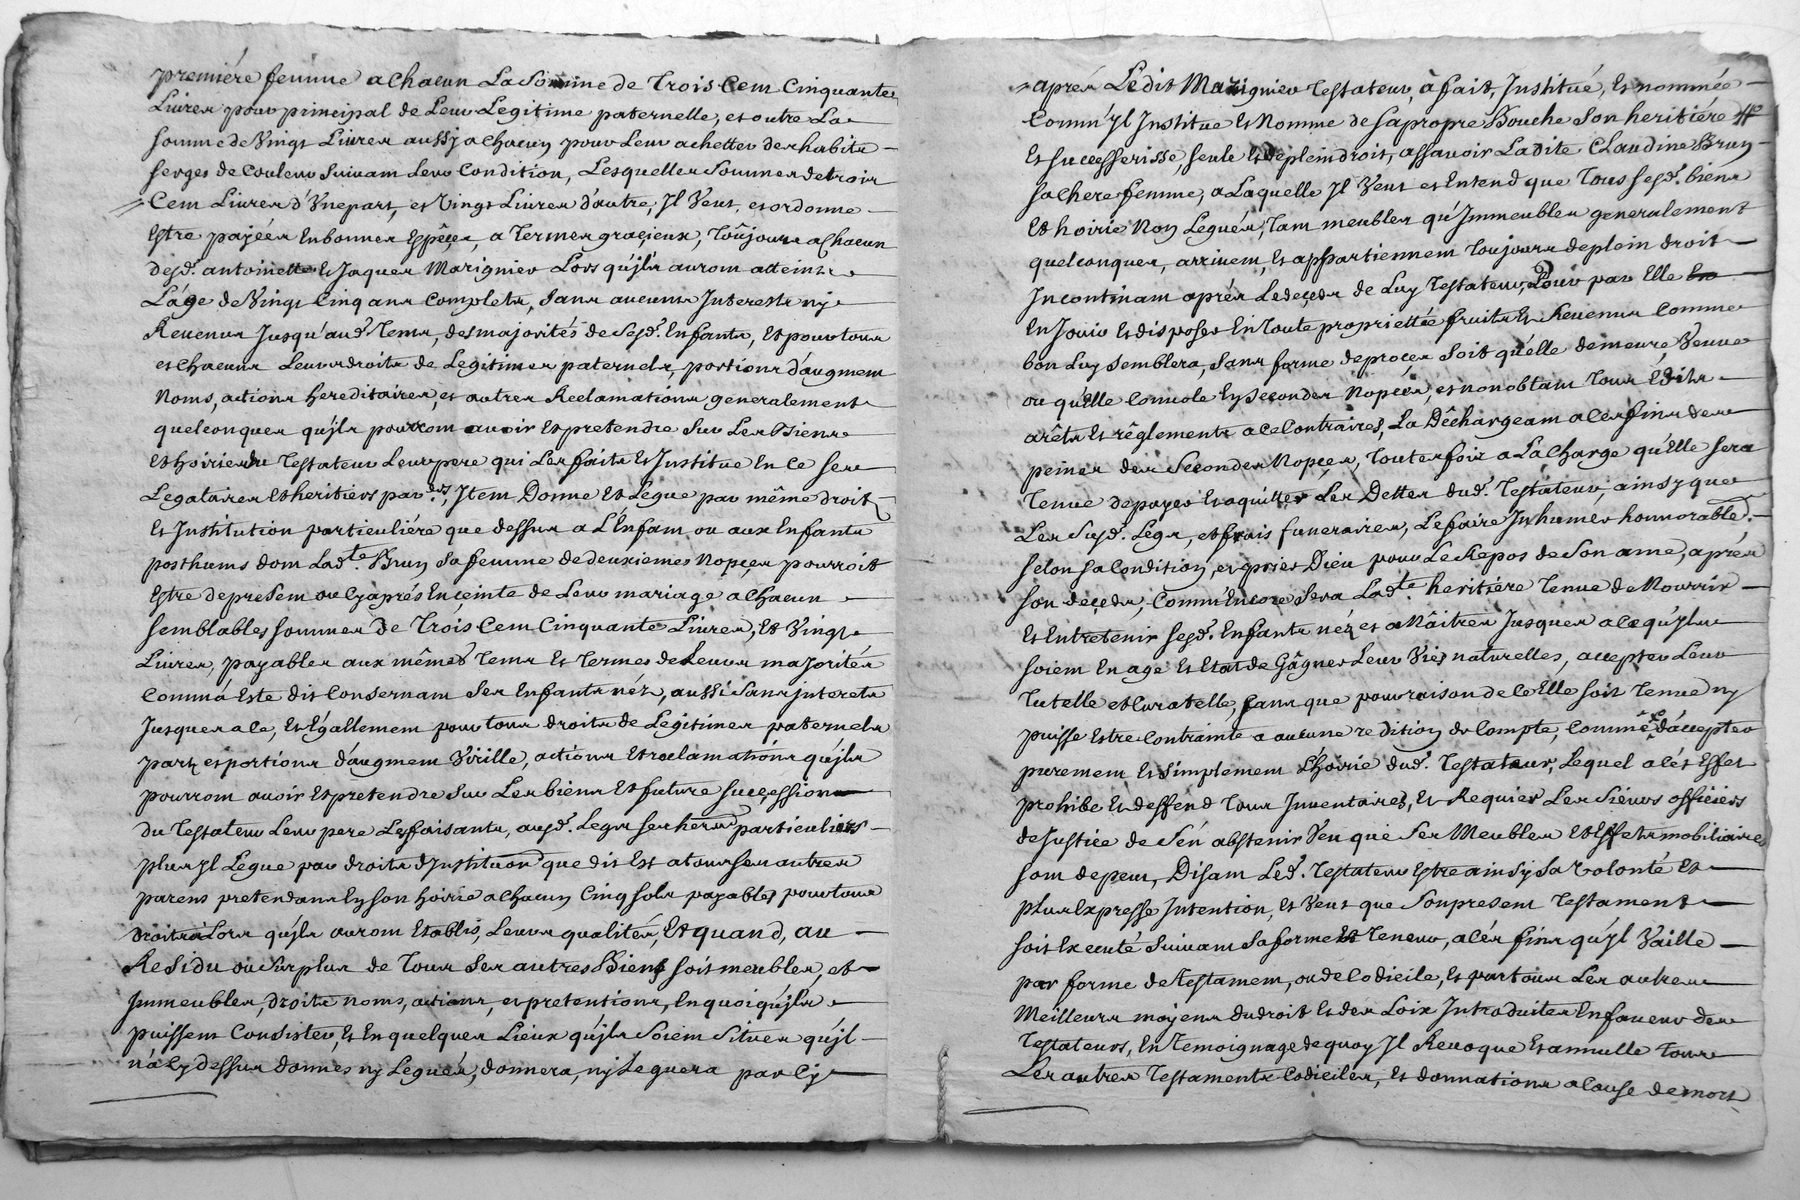 premiére femme a Chacun La Somme de Trois Cent Cinquante
Livres pour principal de Leur Legitime paternelle, et outre La
somme de Vingt Livres aussy a chacun pour Leur achetter des habits
serges de Couleur Suivant Leur Condition, Lesquelles Sommes de trois
Cent Livres d'Vne part, et Vingt Livres d'autre, Il Veut, et ordonne
Estre payées En bonnes Espêces, a Termes graçieux, Toûjours a Chacun
desd. antoinette Et Jaques Marignier Lors qu'jls auront atteints
L'áge de Vingt Cinq ans Complets, sans aucuns Interests nj
Revenus Jusqu'aud. Tems, des majorités de Sesd. Enfants, Et pour tous
et Chacuns Leurs droits de Legitimes paternels, portions d'augment
Noms, actions hereditaires, et autres Reclamations generalement
quelconques qu'jls pourront avoir Et pretendre Sur Les Biens
Et hoirie du Testateur Leur pere qui Les fait Et Institue En Ce Ses
Legataires Et heritiers par.ers, Item Donne Et Legue par même droit
Et Institution particuliére que dessus a L'Enfant ou aux Enfants
posthums dont Lad.te Brun Sa femme de deuxiemes Nopçes pourroit
Estre de present ou Cÿaprés Ençeinte de Leur mariage a Chacun
semblables sommes de Trois Cent Cinquante Livres, Et Vingt
Livres, payables aux mêmes Tems Et Termes de Leurs majorités
Comm'a Esté dit Consernant Ses Enfants néz, aussi Sans jnterets
Jusques a Ce, Et Egallement pour tous droits de Legitimes paternels
parts et portions d'augment Virille, actions Et reclamations qu'jls
pourront avoir Et pretendre Sur Les biens Et future Sucçession
du Testateur Leur pere Les faisants, ausd. Legs ses her.ers particuliers
Plus jl Legue par droit d'Institution que dit Est a tous ses autres
parens pretendans En son hoirie a Chacun Cinq sols payables pour tous
droits a Lors qu'jls auront Etablis, Leurs qualités, Et quand, au
Residu ou Surplus de Tous Ses autres Biens soit meubles, et
Jmmeubles, droits noms, actions, et pretentions, En quoi qu'jls
puissent Consister, Et En quelques Lieux qu'jls Soient Situés qu'jl
n'a Cy dessus donnés nj Legués, donnera, nj Leguera par Cÿ
aprés Ledit Marignier Testateur, a fait, Institué, Et nommée
Comm'Jl Institue Et Nomme de sa propre Bouche Son heritiére
Et successerisse, seule Et de plein droit, assavoir Ladite Claudine Brun
sa chere femme, a Laquelle Jl Veut et Entend que Tous sesd. biens
Et hoirie Non Legués, Tant meubles qu'Jmmeubles generalement
quelconques, arrivent, Et appartiennent Toujours de plein droit
Incontinant aprés Le deçeds de Luy Testateur, Pour par Elle
En Jouir Et disposer En Toute propriettée fruits Et Revenus Comme
bon Luy Semblera, Sans forme de proces Soit qu'elle demeure Veuve
ou qu'Elle Convole En Secondes Nopçes, et nonobstant Tous Edits
arêts Et rêglements a Ce Contraires, La Dêchargeant a Ces fins des
peines des Secondes Nopçes, Toutes fois a La Charge qu'Elle sera
Tenue de payer Et aquitter Les Dettes dud. Testateur, ainsy que
Les Susd. Legs, et frais funeraires, Le faire Inhumer honnorable.t
selon sa Condition, et prier Dieu pour Le Repos de Son ame, aprés
son deçeds, Comm'Encore sera Lad.te heritiére Tenue de Nourrir
Et Entretenir sesd. Enfants néz et a Nâitres Jusques a Ce qu'jls
soient En age Et Etat de Gâgner Leur Vies naturelles, accepter Leur
Tutelle et Curatelle, sans que pour raison de Ce Elle soit Tenue ny
puisse Estre Contrainte a aucune redition de Compte, Comm'e d'accepter
purement Et Simplement L'hoirie dud. Testateur, Lequel a Cés Effet
prohibe Et deffend Tous Inventaires, Et Requier Les Siéurs offisiers
de Justice de S'én abstenir Veu que Ses Meubles Et Effets mobiliaires
sont de peur, Disant Led. Testateur Estre ainsy Sa Volonté Et
plus Expresse Intention, Et Veut que Son present Testament
soit Executé Suivant Sa forme Et Teneur, a Cés fins qu'jl Vaille
par forme de Testament, ou de Codicile, Et par tous Les autres
Meilleurs moyens du droit Et des Loix Introduites En faveur des
Testateurs, En Temoignage de quoy Jl Revoque Et annulle Tous
Les autres Testaments Codiciles, Et donnations a Cause de mort